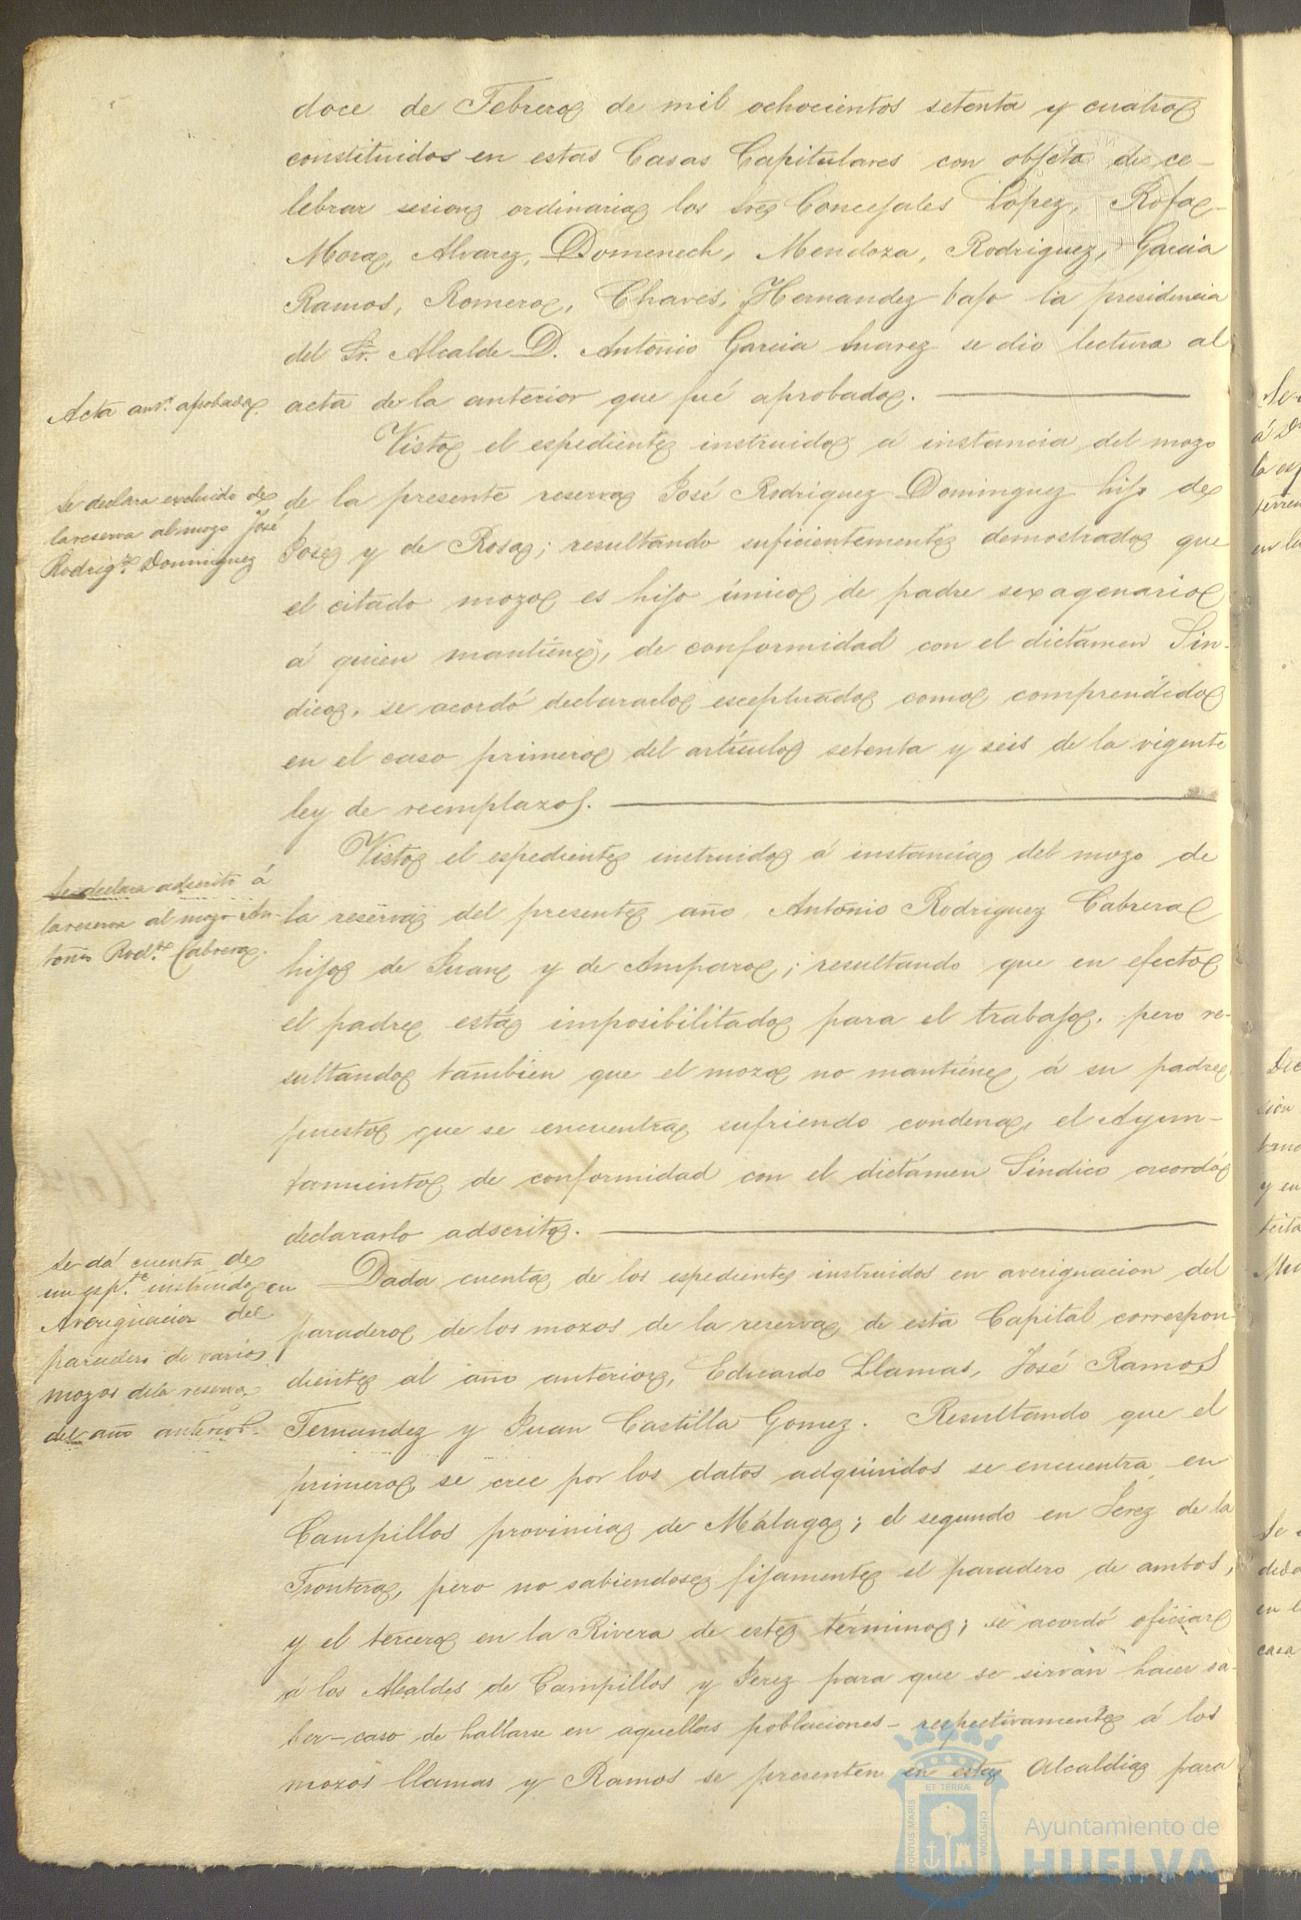 doce de Febrero de mil ochocientos setenta y cuatro
constituidos en estas Casas Capitulares con objeto de ce-
lebrar sesion ordinaria los Sres Concejales López, Rofa
Mora, Alvarez, Domenech, Mendoza, Rodriguez, Garcia
Ramos, Romero, Chaves, Hernandez bajo la presidencia
del Sr. Alcalde D. Antonio Garcia Suarez se dio lectura al
Acta antr. aprobada
acta de la anterior que fué aprobada.
Visto el espediente instruido á instancia del mozo
Se declara excluido de
la reserva al mozo José
Rodrigz. Dominguez
de la presente reserva José Rodriguez Dominguez hijo de
José y de Rosa; resultando suficientemente demostrado que
el citado mozo es hijo único de padre sexagenario
á quien mantiene, de conformidad con el dictámen Sin-
dico, se acordó declararlo esceptuado como comprendido
en el caso primero del artículo setenta y seis de la vigente
ley de reemplazos.
Visto el espediente instruido á instancia del mozo de
Se declara adscrito á
la reserva al mozo An-
tonio Rodz. Cabrera.
la reserva del presente año, Antonio Rodriguez Cabrera
hijo de Juan y de Amparo; resultando que en efecto
el padre está imposibilitado para el trabajo, pero re-
sultando tambien que el mozo no mantiene á su padre,
puesto que se encuentra sufriendo condena, el Ayun-
tamiento de conformidad con el dictámen Síndico acordó
declararlo adscrito.
Se dá cuenta de
un espte. instruido en
Averiguacion del
paradero de varios
mozos de la reserva
del año anterior.
Dada cuenta de los espediente instruidos en averiguacion del
paradero de los mozos de la reserva de esta Capital correspon-
diente al año anterior, Eduardo Llamas, José Ramos
Fernandez y Juan Castilla Gomez. Resultando que el
primero se cree por los datos adquiridos se encuentra en
Campillos provincia de Málaga; el segundo en Jerez de la
Frontera, pero no sabiendose fijamente el paradero de ambos,
y el tercero en la Rivera de este término; se acordó oficiar
á los Alcaldes de Campillos y Jerez para que se sirvan hacer sa-
ber - caso de hallarse en aquellas poblaciones - respectivamente á los
mozos Llamas y Ramos se presenten en esta Alcaldia para
PORTUS MARIS
ET TERRÆ
CUSTODIA
Ayuntamiento de
HUELVA